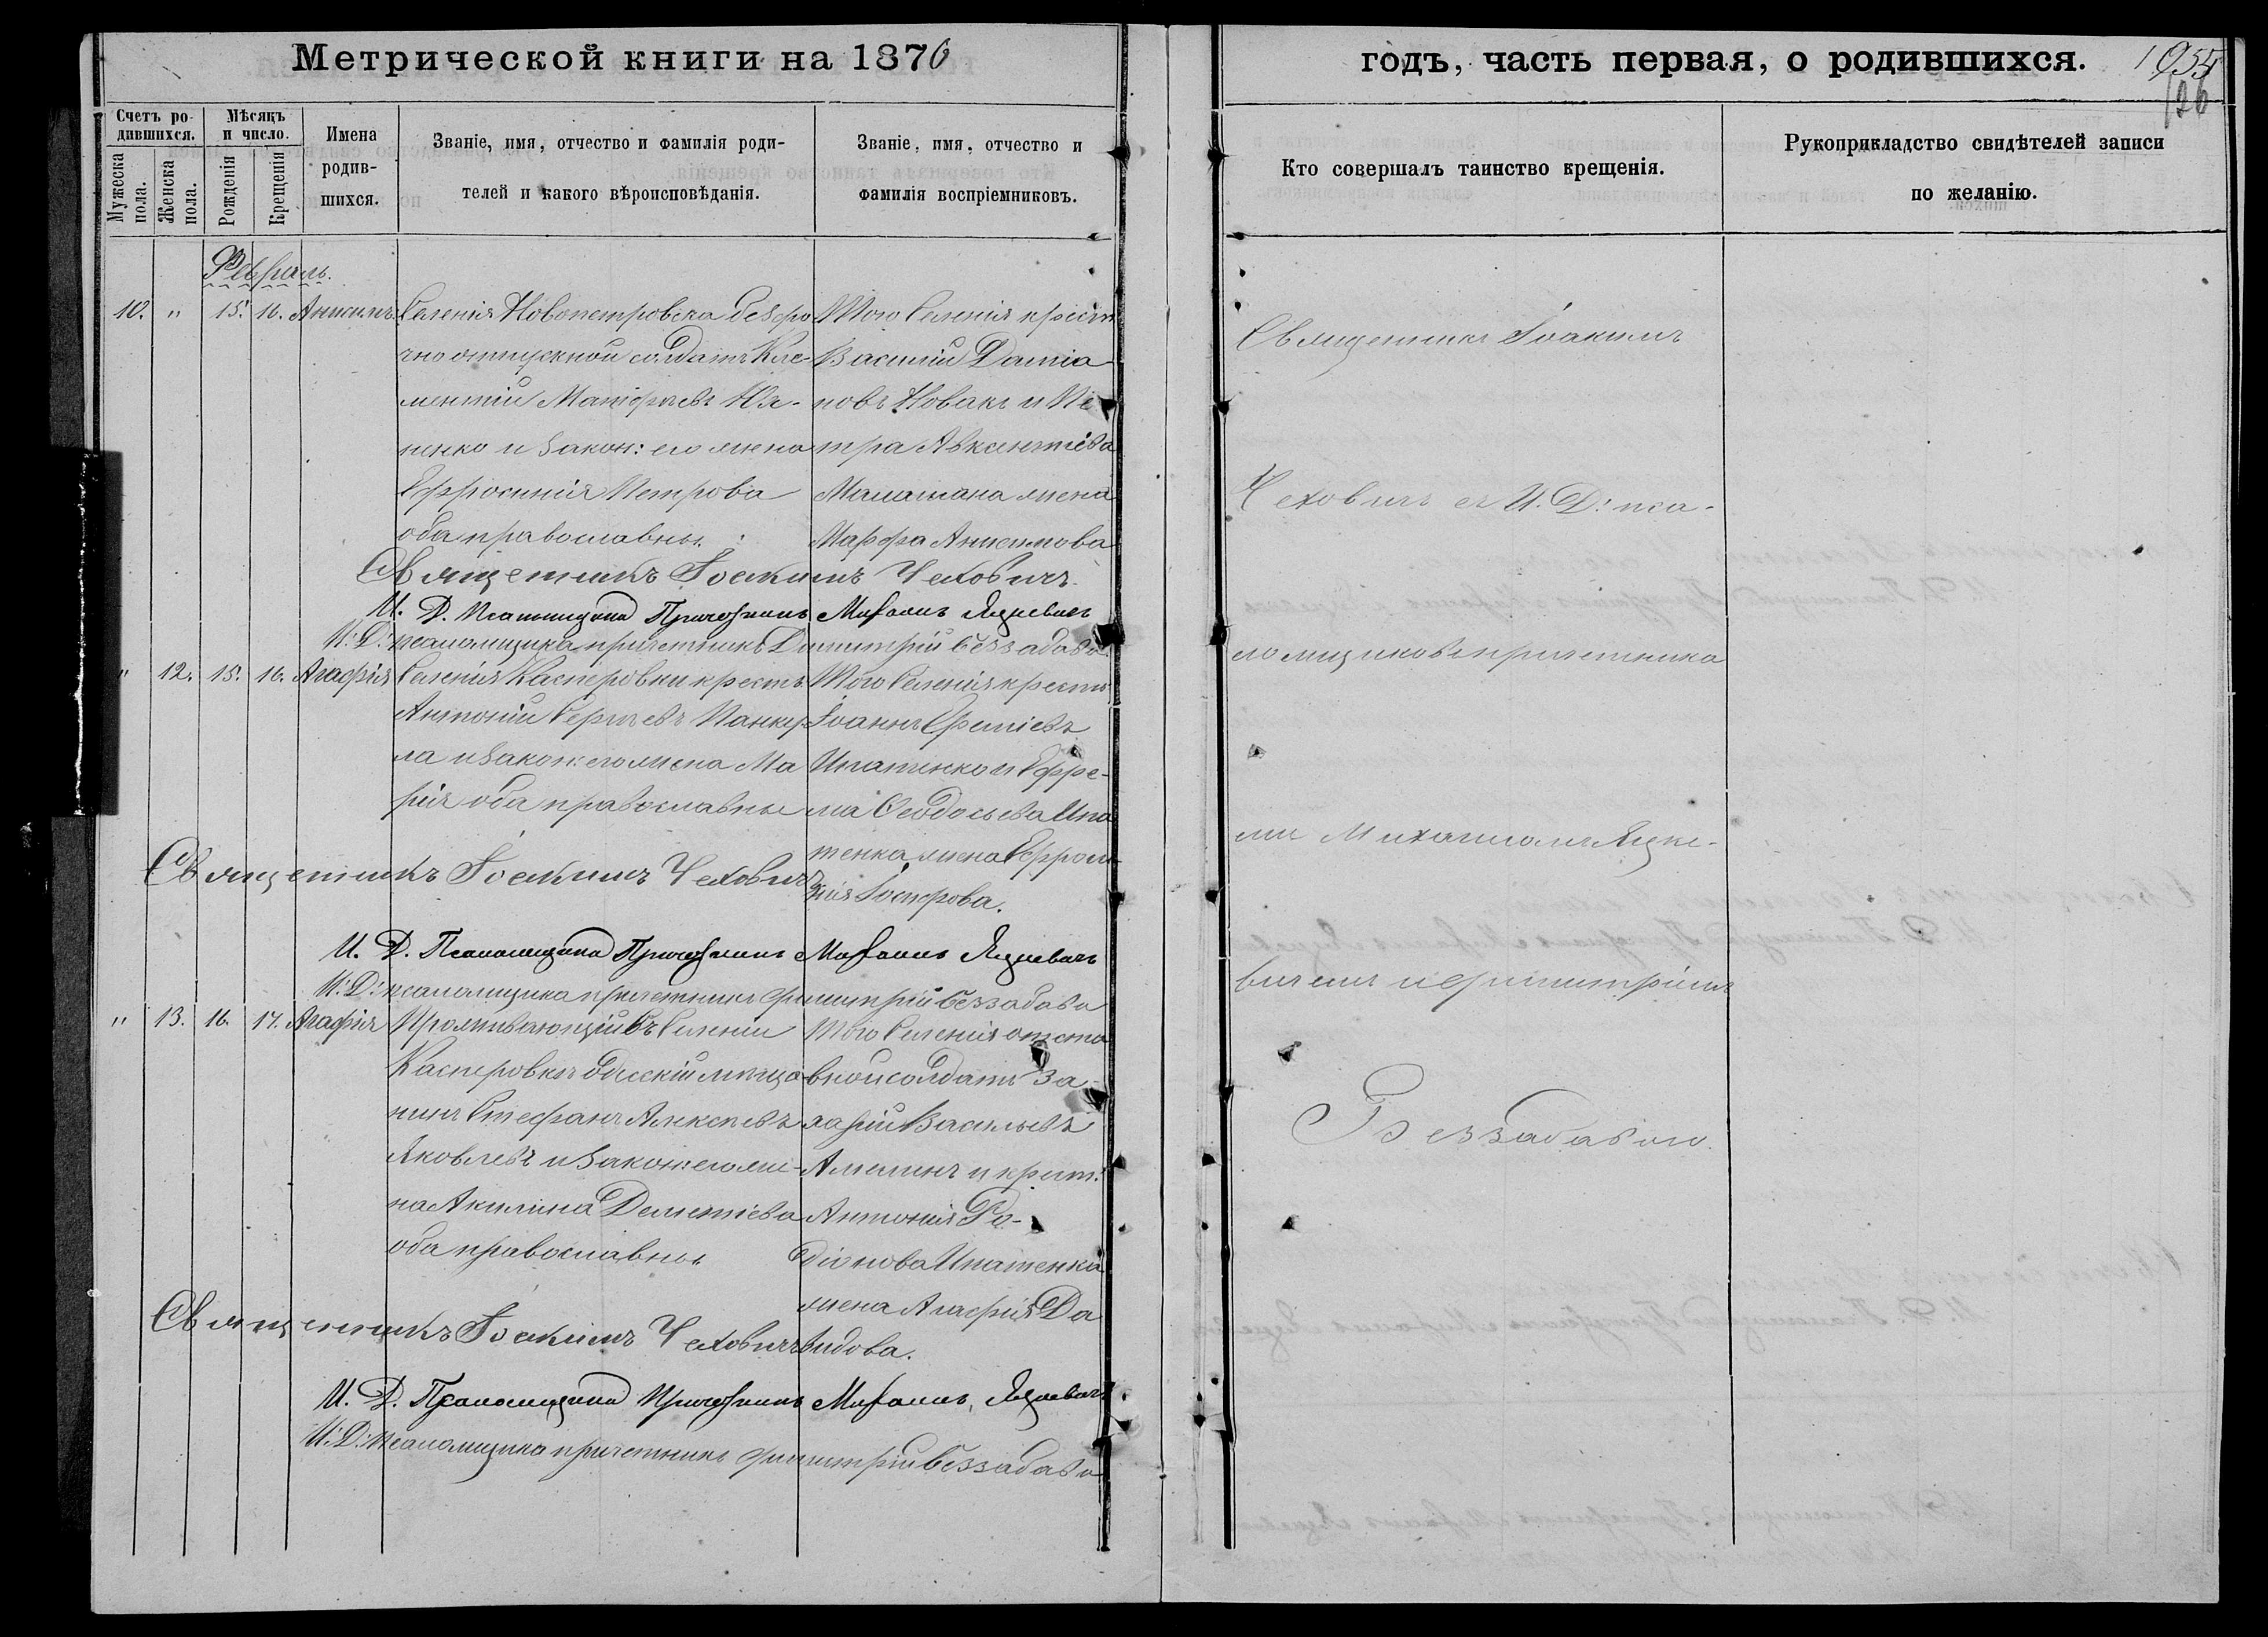 Метрической книги на 1876
годъ, часть первая, о родившихся.
1055
126
Счетъ родившихся.
Мужеска пола.
Женска пола.
Мѣсяцъ и число.
Рожденія
Крещенія
Имена родив-
шихся.
Званіе, имя, отчество и фамилія роди-
телей и какого вѣроисповѣданія.
Званіе, имя, отчество и
фамилія воспріемниковъ.
Кто совершалъ таинство крещенія.
Рукоприкладство свидѣтелей записи
по желанію.
Февраль.
10. " 15. 16. Анисимъ
Селенія Новопетровска безсро
чно отпускной солдатъ Кле-
ментій Матфѣевъ
и Закон: его жена
Ефросинія Петрова
оба православны.
Того Селенія крест
Василій Даміа
новъ Новакъ и Пе
тра Авксентіева
жена
Марфа Анисимова
Священникъ Іоакимъ Чеховичъ
И. Д. Псаломщика Причетникъ Михаилъ Яцкевичъ
И. Д. псаломщика причетникъ Димитрій Беззабава
" 12. 15. 16. Агафія
Селенія Касперовки крест
Антоній Сергѣевъ Панку
ла и Закон: его жена Ма
рія оба православны
Того Селенія крест
Іоаннъ
Ипатенко и Ефре-
ма Феодосьева Ипа
тенка жена Ефроси-
нія
Священникъ Іоакимъ Чеховичъ
И. Д. Псаломщика Причетникъ Михаилъ Яцкевичъ
И. Д. псаломщика причетникъ Димитрій Беззабава
" 13. 16. 17. Агафія
Проживающій въ Селеніи
Касперовкѣ Одесскій мѣща
нинъ Стефанъ Алексѣевъ
Яковлевъ и Закон: его же-
на Акилина Дементіева
оба православны
Того Селенія отста
вной солдатъ За-
харій Васильевъ
и крест:
Антонія Ро-
діонова Ипатенка
жена Агафія Да
видова.
Священникъ Іоакимъ Чеховичъ
И. Д. Псаломщика Причетникъ Михаилъ Яцкевичъ
И. Д. псаломщика причетникъ Димитрій Беззабава
Священникъ Іоакимъ
Чеховичъ съ И. Д: пса-
ломщиковъ причетника
ми Михаиломъ Яцке-
вичемъ и Димитріемъ
Беззабавою.